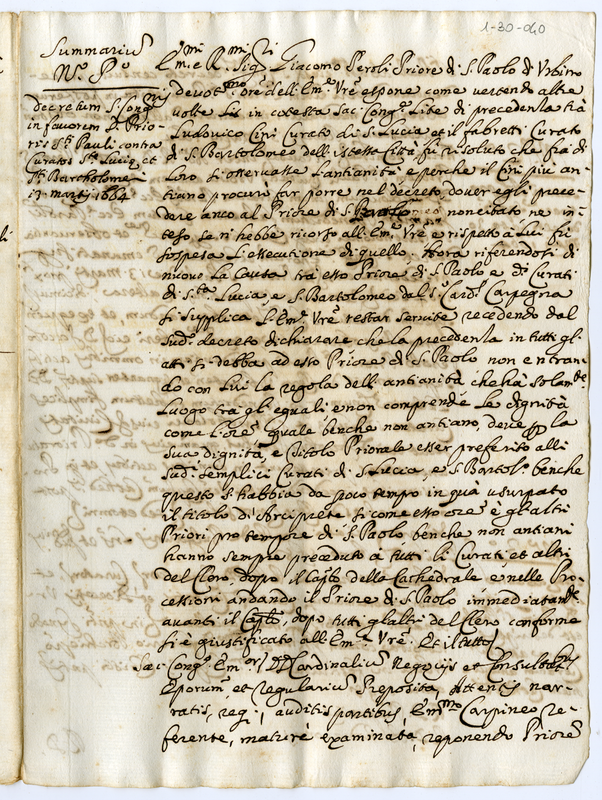 1-30-040
Summariũ
N.º P.º
Decretum S. Cong.nis
in favorem D. Prio-
ris S.ti Pauli contra
Curatos S.tae Luciae, et
S.ti Bartholomei
13. martij 1664
Em.mi e R.mi Sig.ri Giacomo Peroli Priore di S. Paolo di Urbino
devot.mo ore dell'Em.e Vre espone come vertendo altre
volte Lis in cotesta Sac. Cong.e Lite di precedenza trà
Ludovico Cini Curato di S. Lucia et il fabretti Curato
di S. Bartolomeo dell'istessa Città, fù risoluto che frà di
Loro si osservasse L'antianità e perche il Cini più an-
tiano procurò far porre nel decreto, dover egli prece-
dere anco al Priore di S. non citato ne in-
teso, se n'hebbe ricorso all'Em.e Vre e rispetto à Lui fù
sospesa L'essecutione di quello. Hora riferendosi di
nuovo La Causa trà esso Priore di S. Paolo e d.i Curati
di S.ta Lucia, e S. Bartolomeo dal S.r Card.l Carpegna
si supplica L'Em.e Vre restar servite recedendo dal
sud.o decreto dichiarare che la precedenza in tutti gl'
atti si debba ad esso Priore di S. Paolo non entran-
do con Lui la regola dell'antianità che hà solam.te
Luogo trà gl'eguali e non comprende Le dignità
come L'ore quale benche non antiano, deve p la
sua dignità, e titolo Priorale esser preferito alli
sud.i semplici Curati di S. Lucia, e S. Bartol.o benche
questo S'habbia da poco tempo in quà usurpato
il titolo di Arciprete si come esso ore e gl'altri
Priori pro tempore di S. Paolo benche non antiani
hanno sempre preceduto à tutti li Curati et altri
del Clero, dopo il Cap.lo della Cathedrale e nelle Pro-
cessioni andando il Priore di S. Paolo immediatam.te
avanti il Cap.lo, dopo tutti gl'altri del Clero conforme
si è giustificato all'Em.e Vre. Et il tutto
Sac. Cong.o Em.orũ DD. Cardinaliũ Negocijs et Consultat.bus
Eporum et Regulariũ Preposita, Attentis nar-
ratis, auditis partibus, Em.mo Carpineo re-
ferente, mature examinata, reponendo Priorẽ